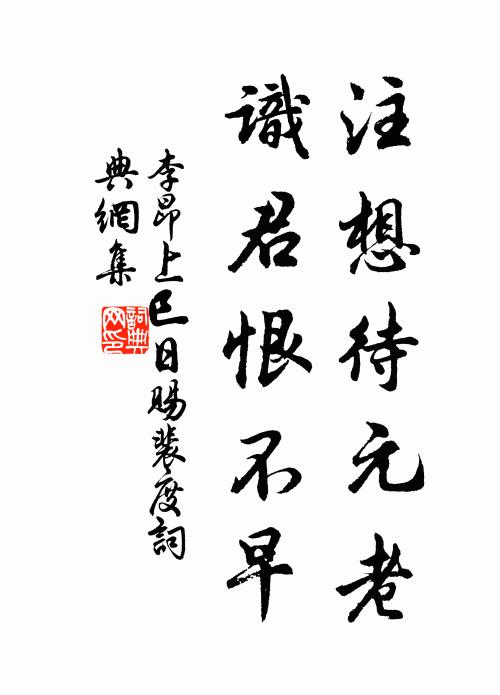 注想待元老
識君恨不早
李昂上巳日賜裴度詞
典網集
詞典
网印